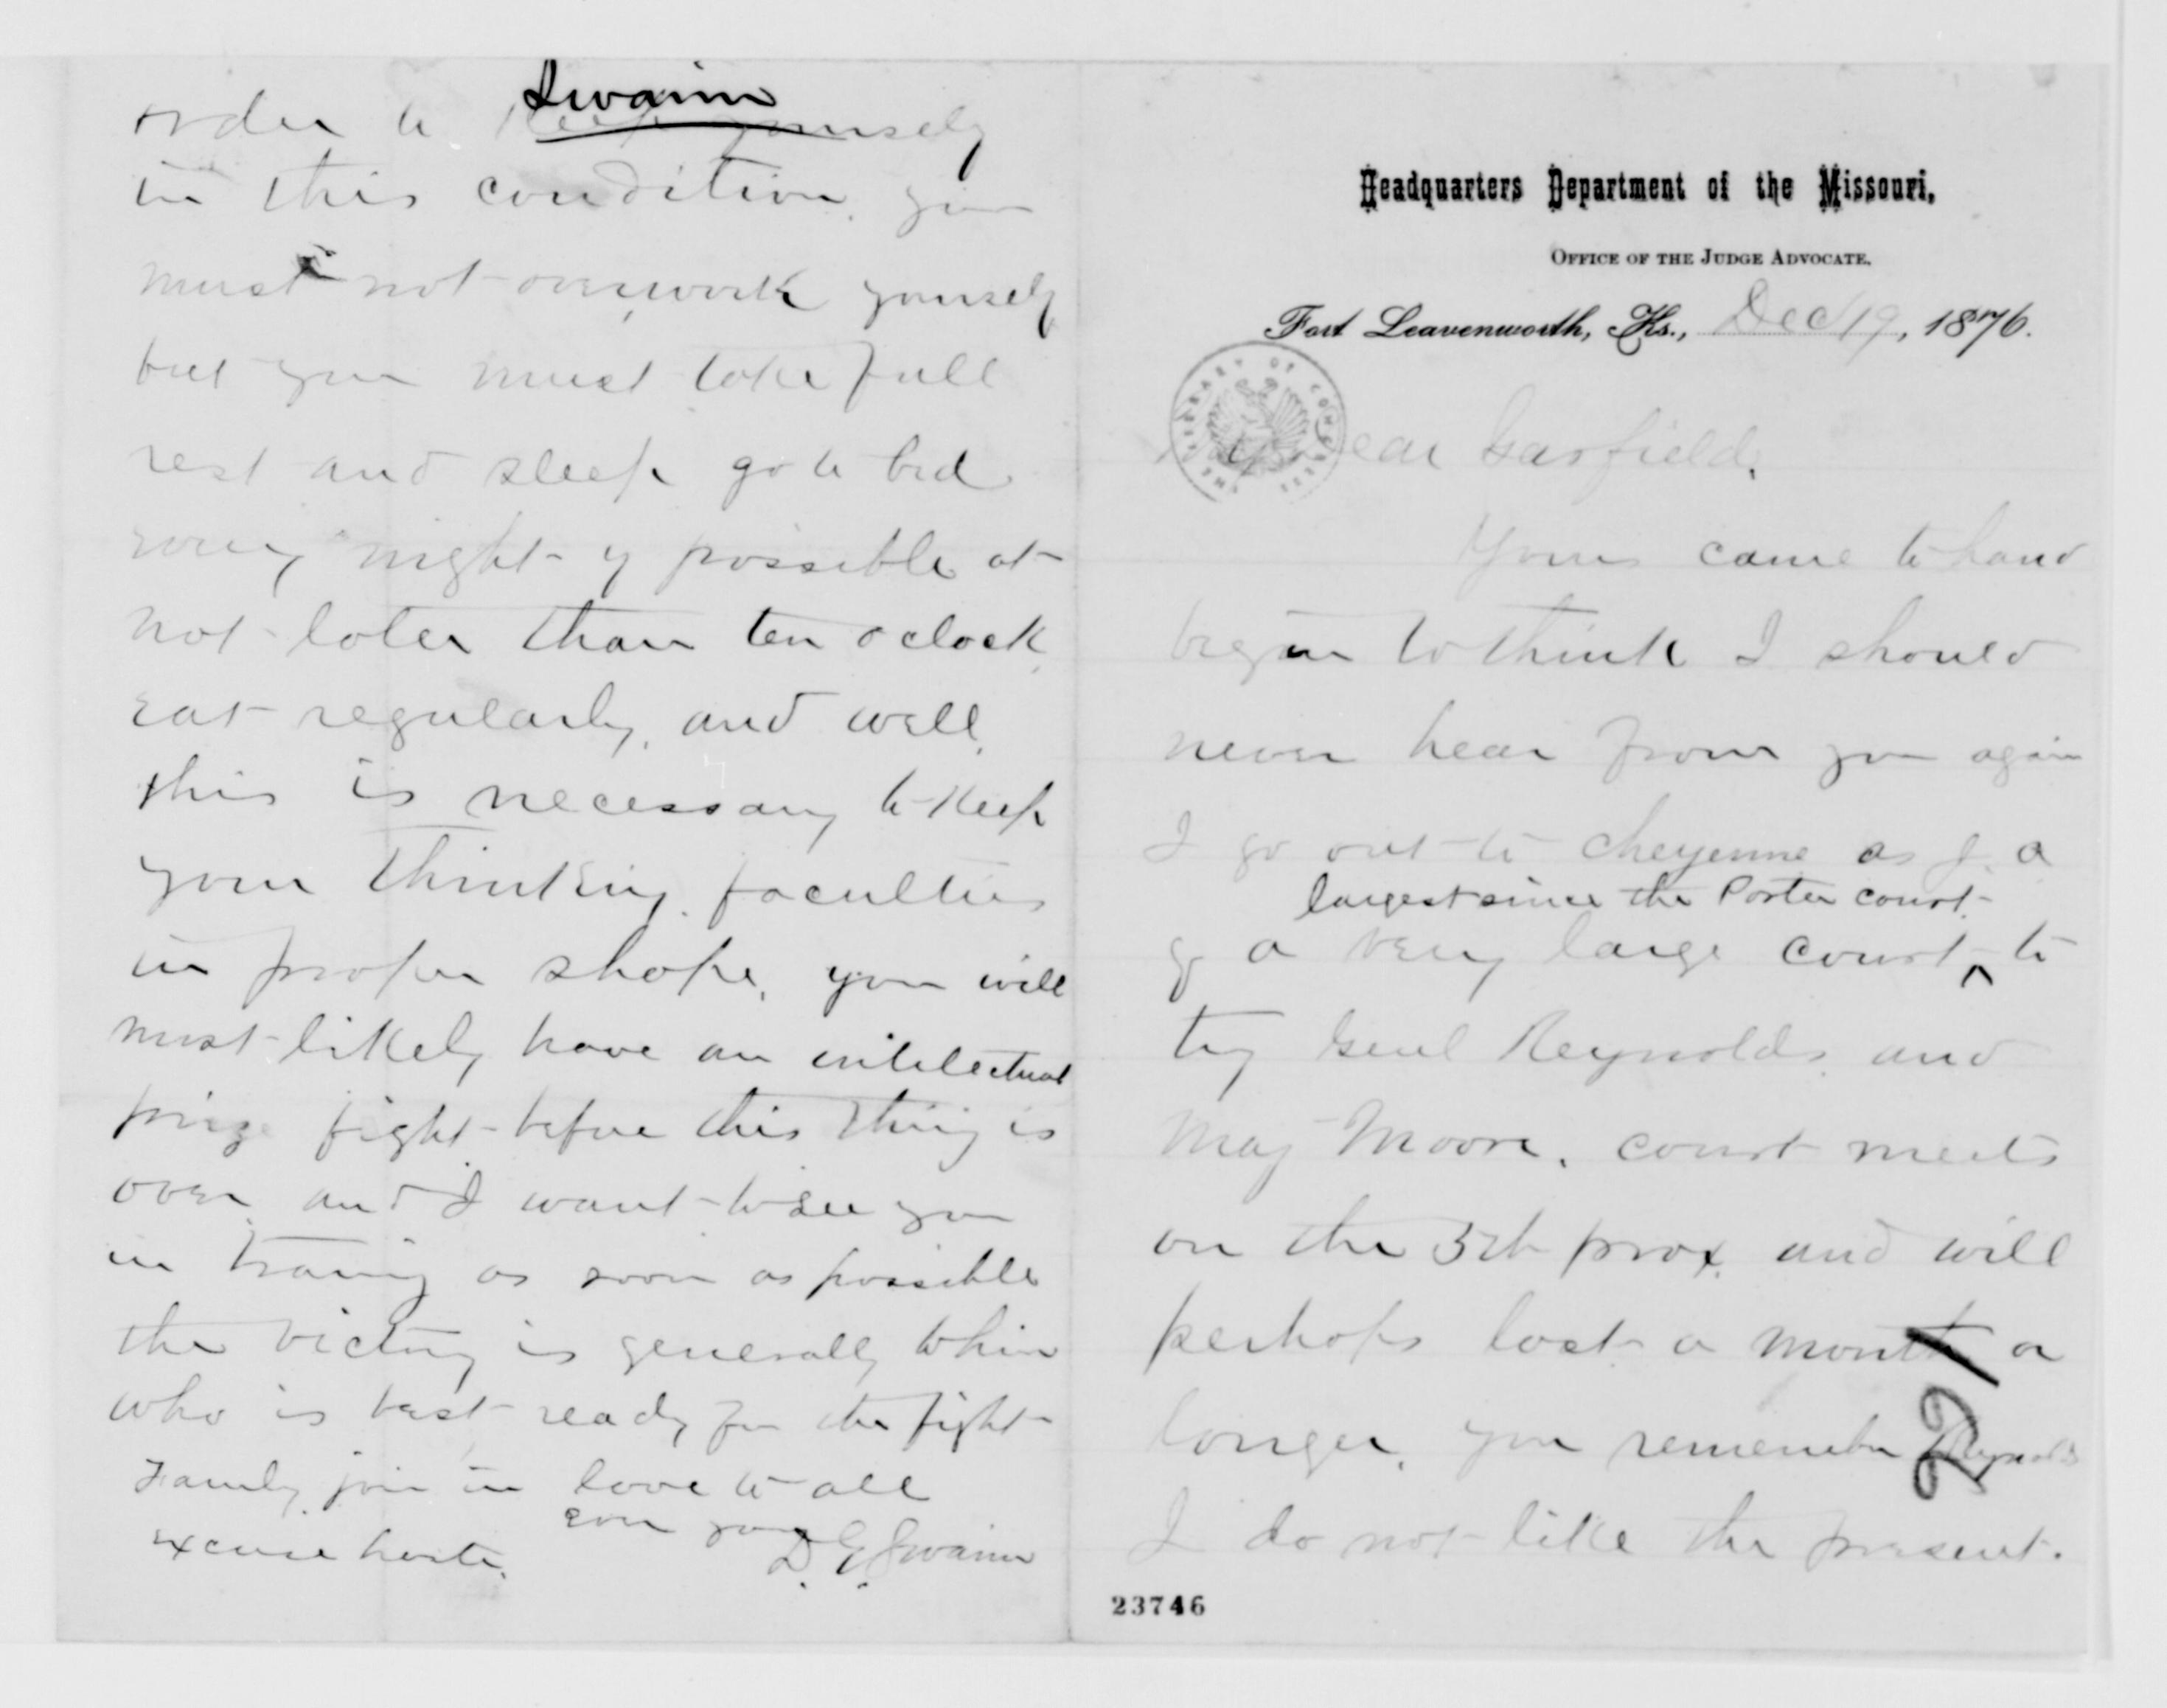 Headquarters Department of the Missouri,
OFFICE OF THE JUDGE ADVOCATE.
Fort Leavenworth, Ks., Dec 19, 1876.
THE LIBRARY OF CONGRESS
My Dear Garfield,
Yours came to hand
began to think I should
never hear from you again
I go out to Cheyenne as J. a
largest since the Porter court.
of a very large court ^ to
try Genl Reynolds and
Maj Moore. court meets
on the 5th prox. and will
perhaps last a month or
longer. you remember Reynolds
I do not like the present.
23746
Swaim
order to keep yourself
in this condition. you
must not overwork yourself
but you must take full
rest and sleep go to bed
every night if possible at
not later than ten oclock
eat regularly, and well,
this is necessary to keep
your thinking faculties
in proper shape, you will
most likely have an intelectual
prize fight before this thing is
over and I want to see you
in traing as soon as possible
the victory is generally to him
who is best ready for the fight
Family join in love to all
excuse haste.
ever yours
D. G. Swaim